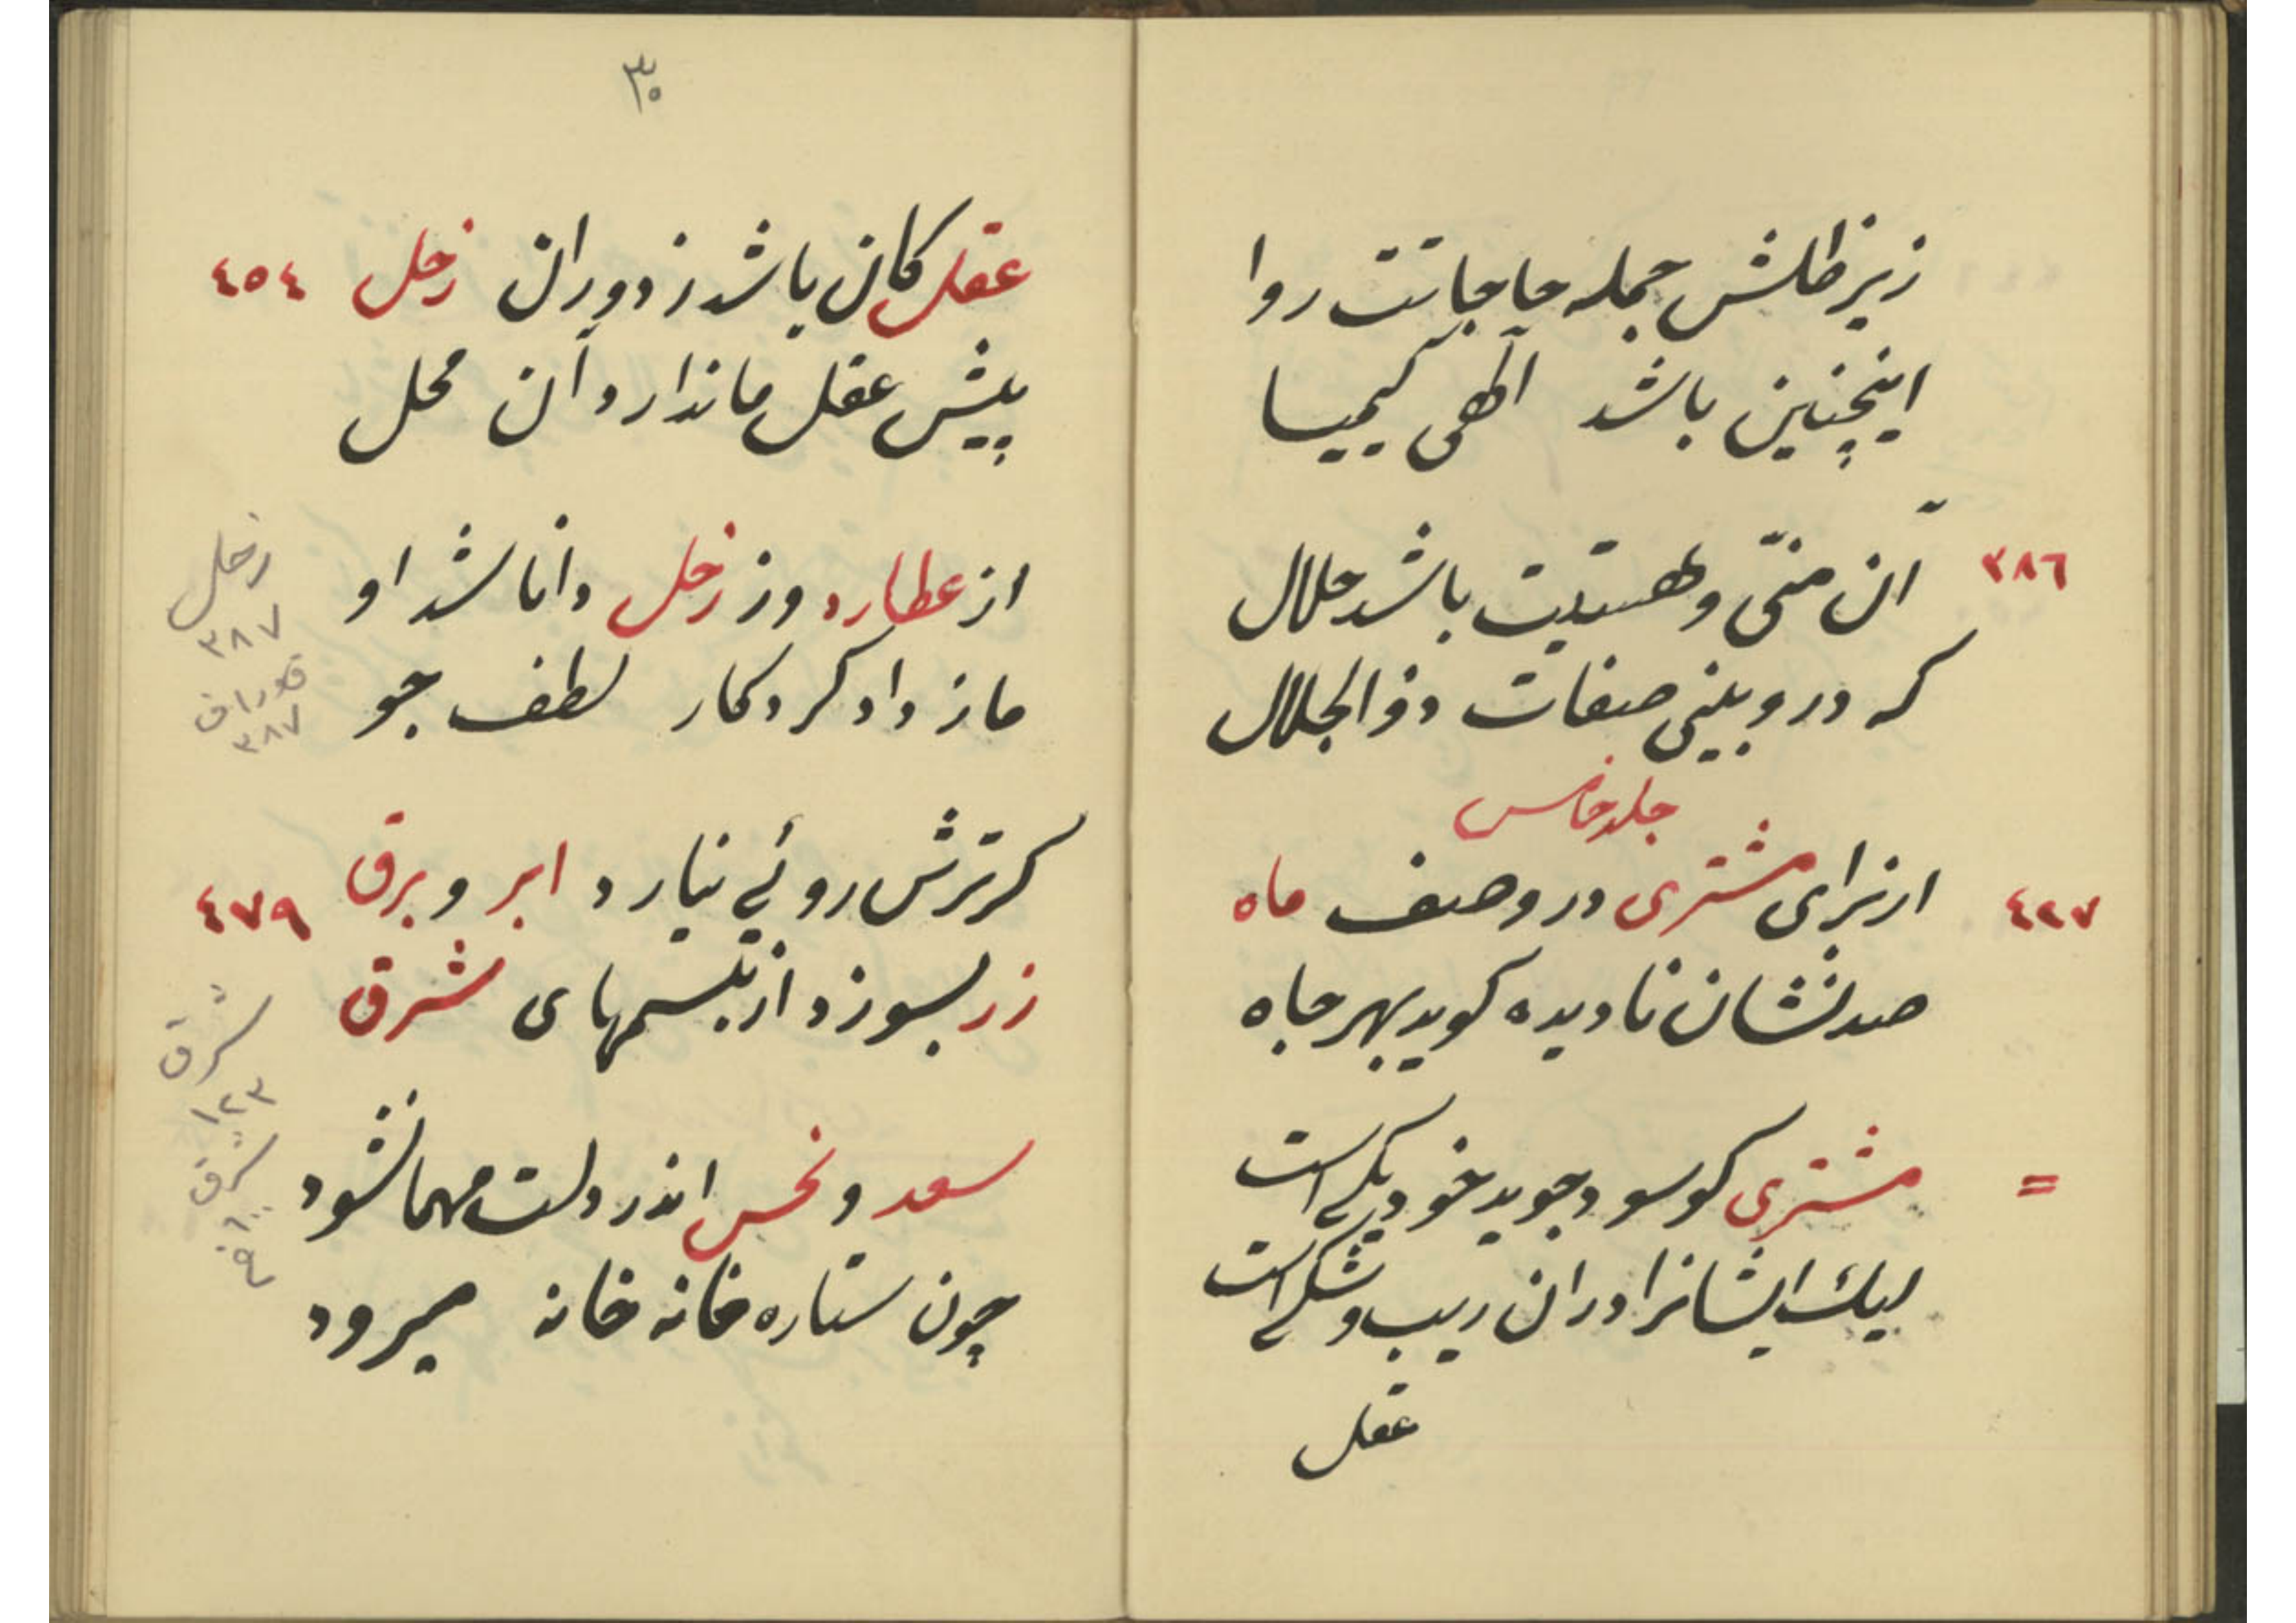 زیر ظلش جمله حاجاتت روا
اینچنین باشد الهی کیمیا
٣٨٦ آن منّی و هستیت باشد حلال
که درو بینی صفات ذوالجلال
جلد خامس
٤٢٧ از برای مشتری در وصف ماه
صد نشان نادیده کوید بهر جاه
= مشتری کو سود جوید خود یکی است
لیک ایشانرا دران ریب و شکی است
عقل
٣٠
عقل کان باشد ز دوران زحل ٤٥٤
پیش عقل ما ندارد آن محل
از عطارد وز زحل دانا شد او
ما ز داد کردکار لطف جو
زحل
٣٨٧
٣٨٧
کر ترش روئی نیارد ابر و برق ٤٧٩
زر بسوزد از تبسمهای شرق
شرق
١٢٣
شرق
سعد و نحس اندر دلت مهمان شود
چون ستاره خانه خانه میرود